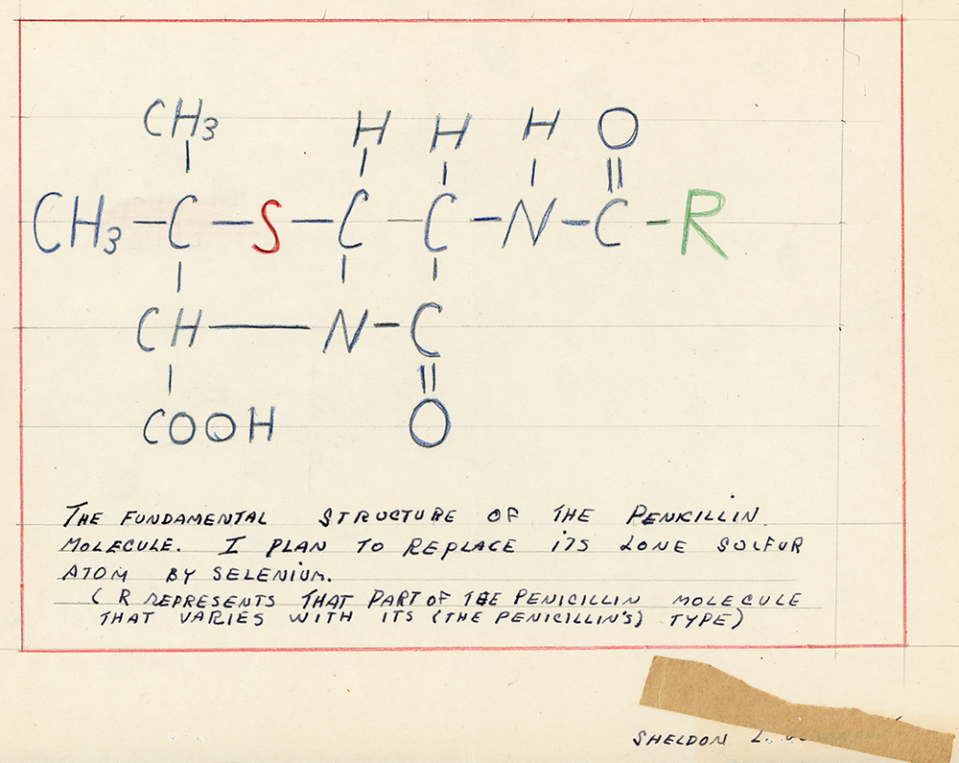 CH3 H H H O
CH3 - C - S - C - C - N - C - R
CH N - C
COOH O
THE FUNDAMENTAL STRUCTURE OF THE PENICILLIN
MOLECULE. I PLAN TO REPLACE ITS LONE SULFUR
ATOM BY SELENIUM.
( R REPRESENTS THAT PART OF THE PENICILLIN MOLECULE
THAT VARIES WITH ITS (THE PENICILLIN'S) TYPE)
SHELDON L.